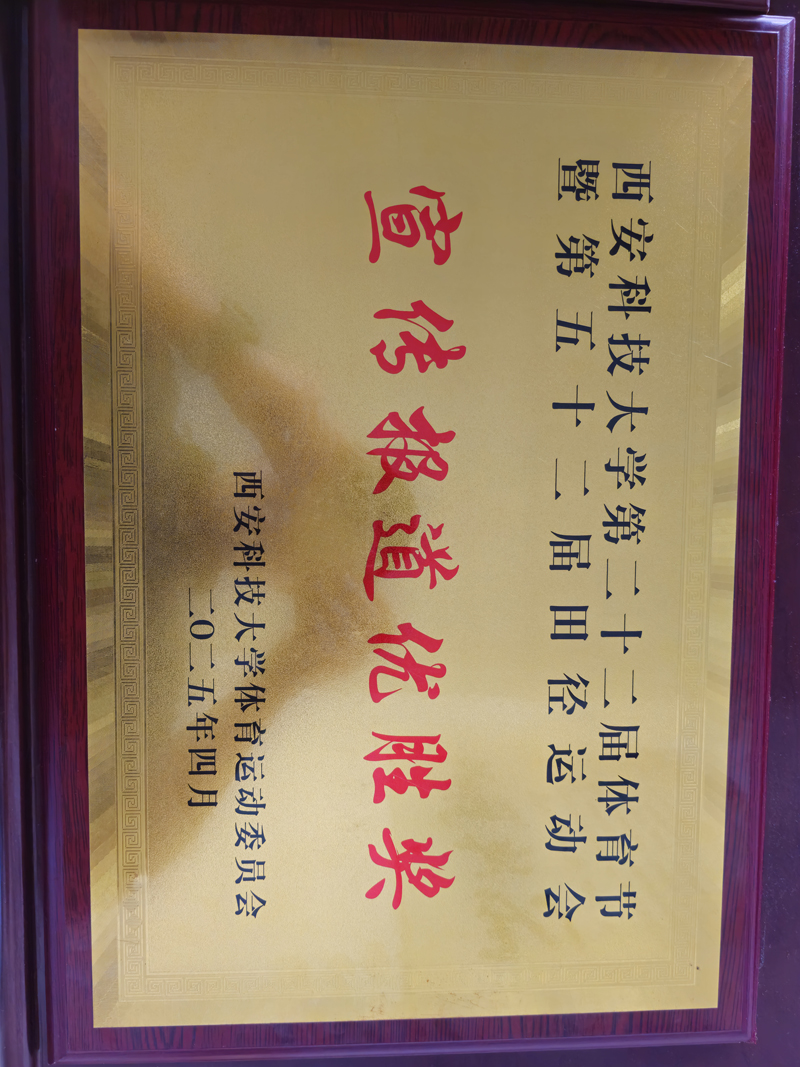 西安科技大学第二十二届体育节
暨第五十二届田径运动会
宣传报道优胜奖
西安科技大学体育运动委员会
二〇二五年四月